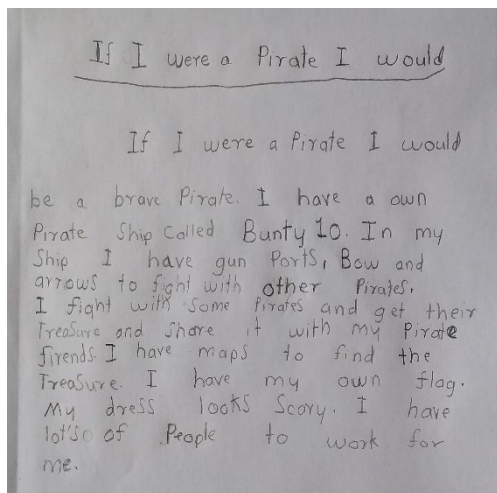 If I were a Pirate I would
If I were a Pirate I would
be a brave Pirate. I have a own
Pirate Ship Called Bunty 10. In my
Ship I have gun Ports, Bow and
arrows to fight with other Pirates.
I fight with Some Pirates and get their
Treasure and Share it with my Pirate
firends. I have maps to find the
Treasure. I have my own flag.
My dress looks Scary. I have
lot's of People to work for
me.